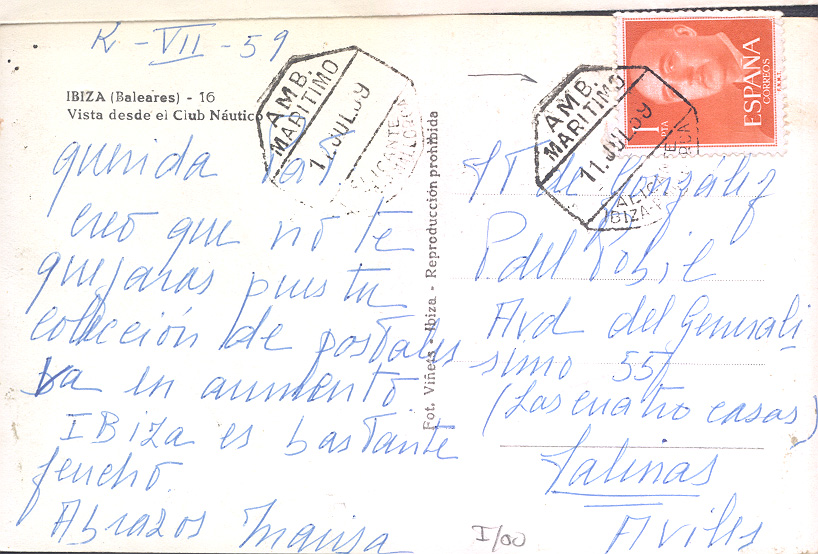 VII - 59
IBIZA (Baleares) - 16
Vista desde el Club Náutico
querida
creo que no te
quejaras pues tu
colección de postales
va en aumento
IBIZA es bastante
feucho.
Abrazos
Fot. Viñets - Ibiza. - Reproducción prohibida
AMB.
MARITIMO
11 JUL 59
ALICANTE
AMB.
MARITIMO
11 JUL 59
ALICANTE
IBIZA-
1
PTA
ESPAÑA
CORREOS
F.N.M.T.
de González
P del Pobil
Avd del Generali-
simo 55
(Las cuatro casas)
Salinas
Aviles
I/00